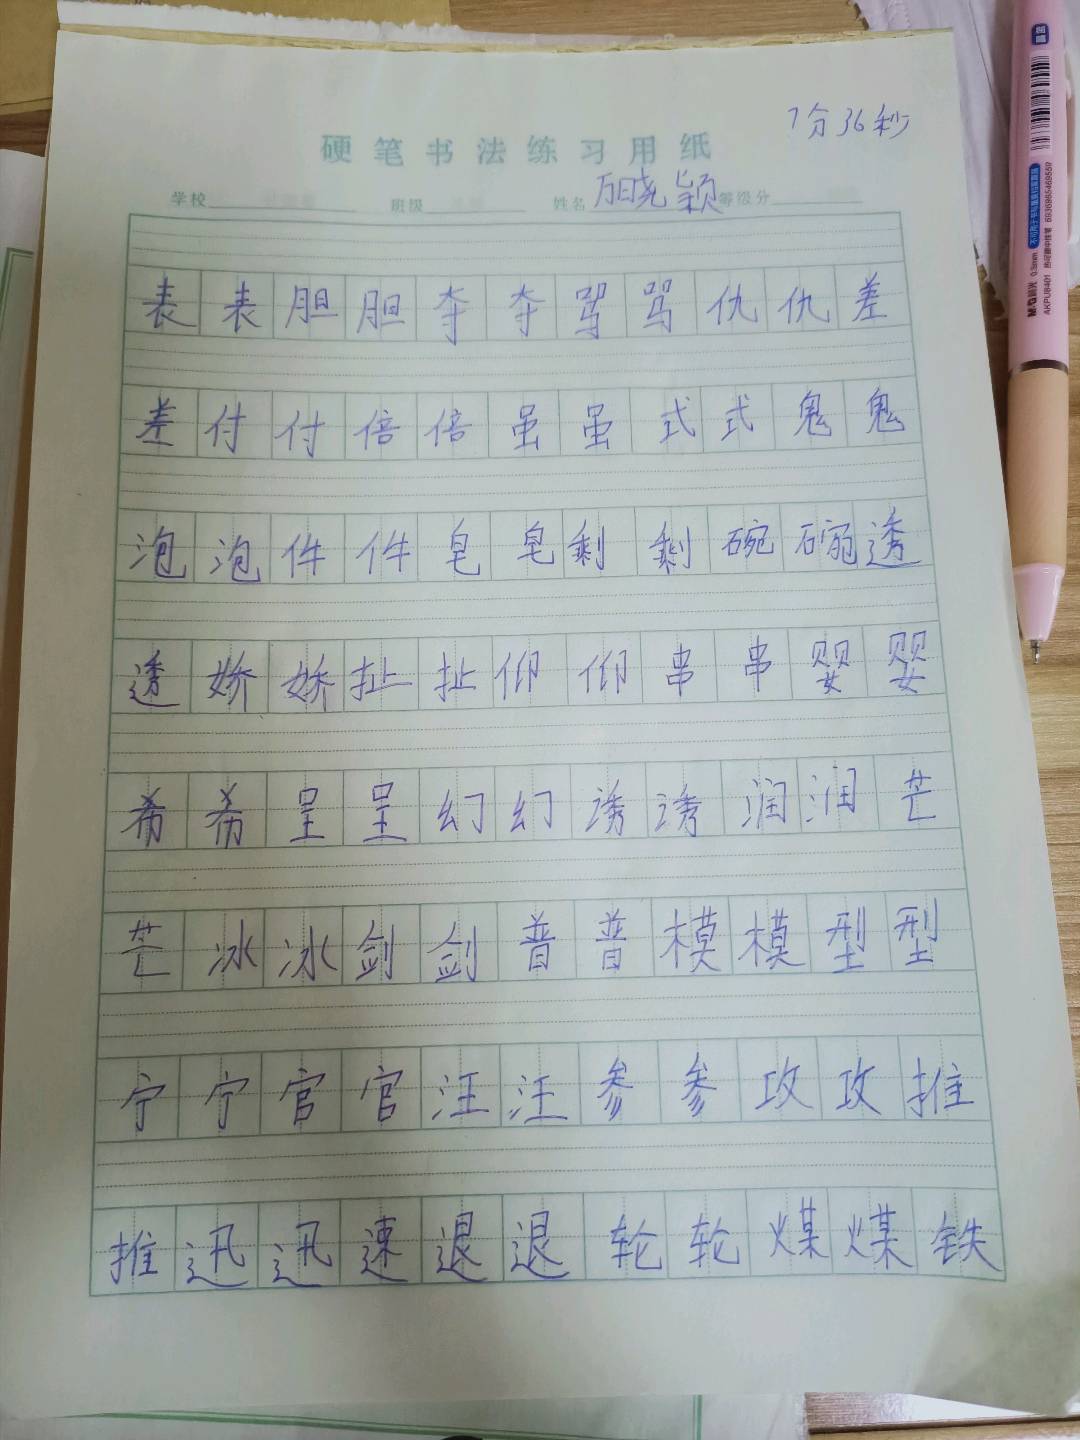 7分36秒
硬笔书法练习用纸
学校 班级 姓名 万晓颖 等级分
表表胆胆夺夺骂骂仇仇差
差付付倍倍虽虽式式鬼鬼
泡泡件件皂皂剩剩碗碗透
透娇娇扯扯仰仰串串婴婴
希希呈呈幻幻诱诱润润芒
芒冰冰剑剑普普模模型型
宁宁官官汪汪参参攻攻推
推迅迅速退退轮轮煤煤铁
M&G晨光 0.5mm 热可擦中性笔
AKPU8401 6936865469559